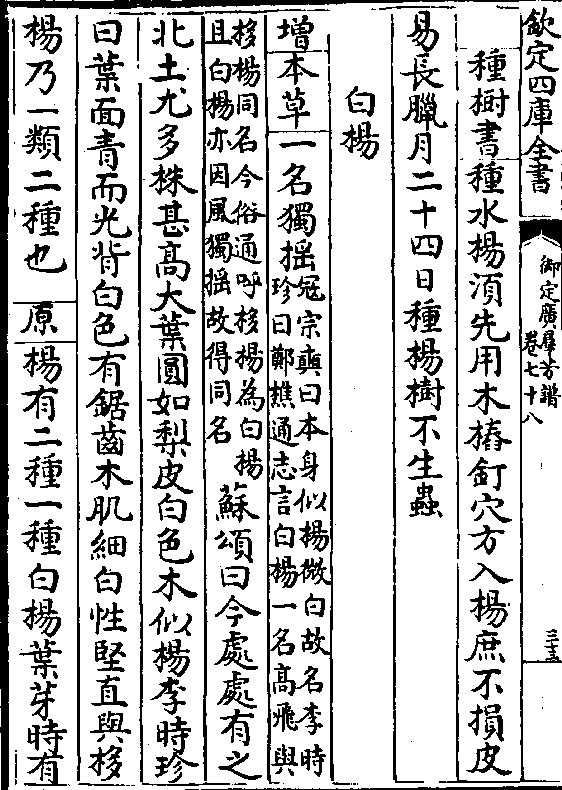 欽定四庫全書
御定廣羣芳譜
卷七十八
三十五
種樹書種水楊湏先用木樁釘穴方入楊庶不損皮
易長臘月二十四日種楊樹不生蟲
白楊
增本草一名獨揺冦宗奭曰本身似楊微白故名李時
珍曰鄭樵通志言白楊一名高飛與
栘楊同名今俗通呼栘楊為白楊
且白楊亦因風獨揺故得同名
蘇頌曰今處處有之
北土尤多株甚髙大葉圓如梨皮白色木似楊李時珍
曰葉面青而光背白色有鋸齒木肌細白性堅直與栘
楊乃一類二種也原楊有二種一種白楊葉芽時有